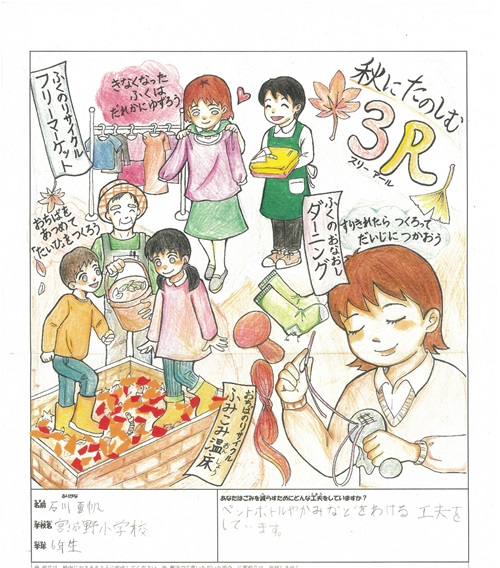 秋にたのしむ
3R
スリーアール
ふくのリサイクル
フリーマーケット
きなくなった
ふくは
だれかにゆずろう
おちばを
あつめて
「たいひ」をつくろう
ふくのおなおし
ダーニング
すりきれたら つくろって
だいじにつかおう
おちばのリサイクル
ふみこみ温床
おんしょう
ふりがな
名前 石川
学校名 宮城野小学校
学年 6年生
あなたはごみを減らすためにどんな工夫をしていますか?
ペットボトルやかみなどをわける工夫を
しています。